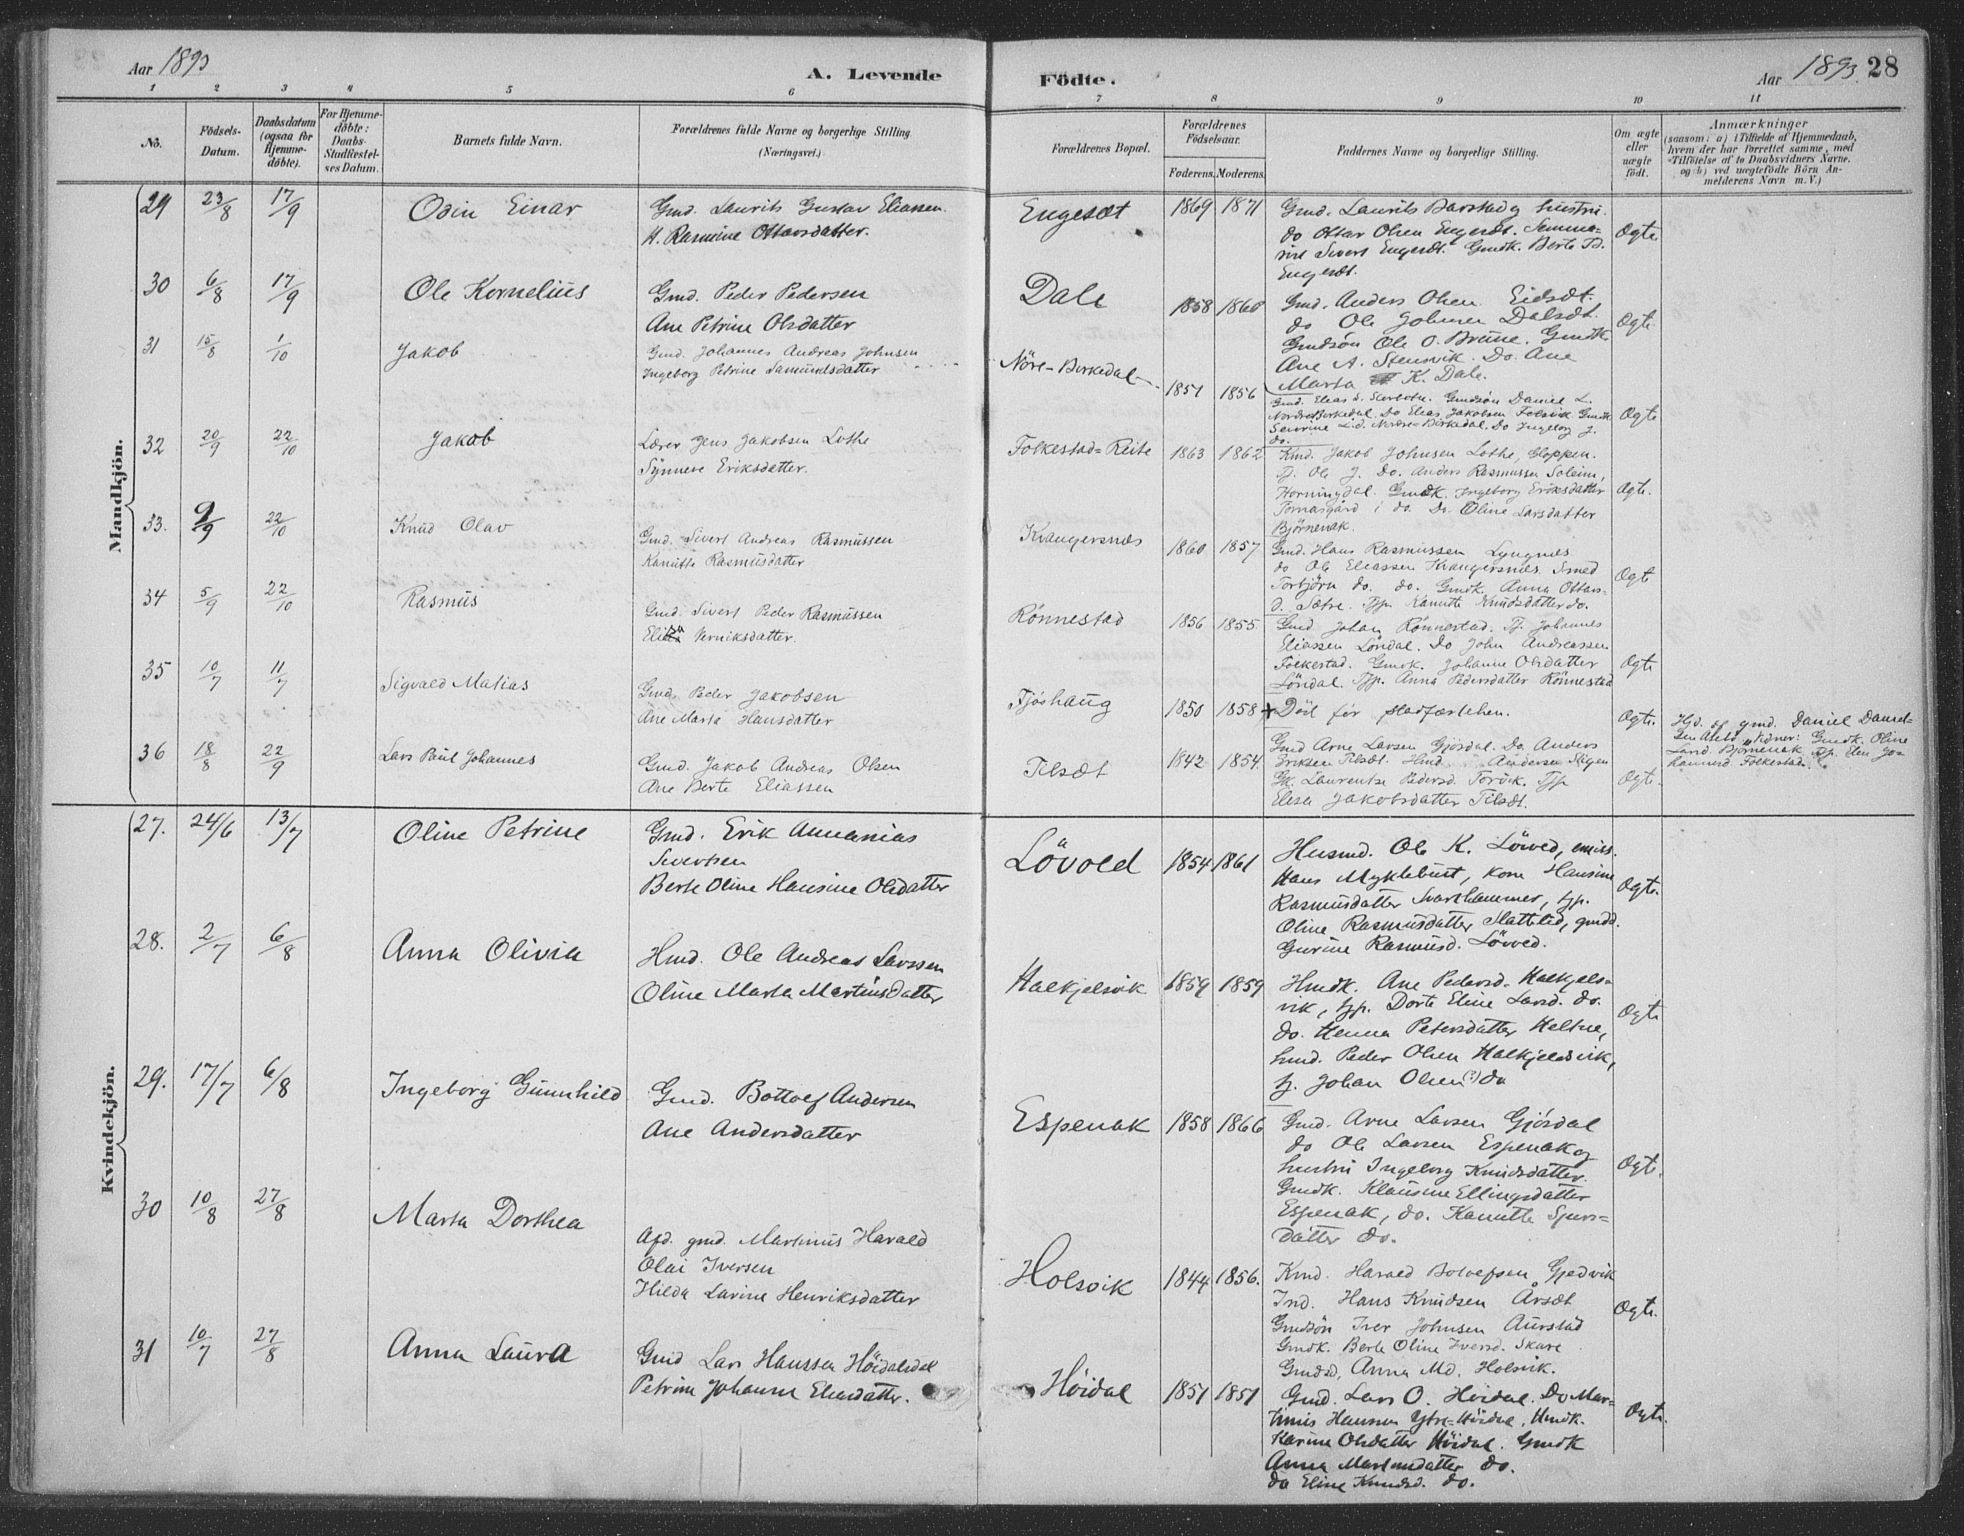 Aar 1893
A. Levende
Födte.
Aar 1893. 28
1 2 3 4 5 6 7 8 9 10 11
No.
Födsels-
Datum.
Daabsdatum
(ogsaa for
Hjemme-
döbte).
For Hjemme-
döbte:
Daabs-
Stadfæstel-
ses Datum.
Barnets fulde Navn.
Forældrenes fulde Navne og borgerlige Stilling
(Næringsvei.)
Forældrenes Bopæl.
Forældrenes
Födselsaar.
Faderens. Moderens.
Faddernes Navne og borgerlige Stilling.
Om ægte
eller
uægte
födt.
Anmærkninger
(saasom: a) i Tilfælde af Hjemmedaab,
hvem der har forrettet samme, med
Tilföielse af to Daabsvidners Navne.
og b) ved uægtefödte Börn An-
melderens Navn m. V.)
Mandkjön.
29 23/8 17/9 Odin Einar
Gmd. Laurits Gustav Eliassen.
H. Rasmine Ottarsdatter.
Engesæt 1869 1871
Gmd. Laurits Barstad og hustru.
do Ottar Olsen Engesæt.
Sivert Engesæt. Gmdk. Berte
Engesæt.
Ægte
30 6/8 17/9 Ole Kornelius
Gmd. Peder Pedersen
Ane Petrine Olsdatter
Dale 1858 1860
Gmd. Anders Olsen Eidsæt.
do Ole Johnsen Dalsæt.
Gmdsön Ole O. Brune. Gmdk
Ane A. Stensvik. Do. Ane
Marta K. Dale.
Ægte
31 15/8 1/10 Jakob
Gmd. Johannes Andreas Johnsen
Ingeborg Petrine Samuelsdatter
Nöre-Birkedal 1851 1856
Gmd. Elias S. Gmdsön Daniel L.
Nordre Birkedal. Do Elias Jakobsen Gmdk
Severine Nordre-Birkedal. Do Ingeborg J.
do.
Ægte
32 20/9 22/10 Jakob
Lærer Jens Jakobsen Lothe
Synneve Eriksdatter.
Folkestad-Reite 1863 1862
Kmd. Jakob Johnsen Lothe, Gloppen.
Tj. Ole J. do. Anders Rasmussen Soleim,
Horningdal. Gmdk. Ingeborg Eriksdatter
Tomasgård i do. Do. Oline Larsdatter
Björnenak.
Ægte.
33. 9/9 22/10 Knud Olav
Gmd. Sivert Andreas Rasmussen
Kanutte Rasmusdatter
Kvangersnæs 1860 1857
Gmd. Hans Rasmussen Lyngnes
do Ole Eliassen Kvangersnæs. Smed
Torbjörn do. do. Gmdk. Anna Ottars-
d. Sætre. Tjp. Kanutte Knudsdatter do.
Ægte
34 5/9 22/10 Rasmus
Gmd. Sivert Peder Rasmussen
Verniksdatter.
Rönnestad 1856 1855
Gmd Johan Rönnestad. Tj. Johannes
Eliassen Löndal. Do John Andreassen
Folkestad. Gmdk. Johanne Olsdatter
Löndal. Tjp. Anna Pedersdatter Rönnestad
Ægte
35 10/7 11/7 Sigvald Matias
Gmd. Peder Jakobsen
Ane Marta Hansdatter
Fjöshaug 1850 1858
+ Död för stadfæstelsen.
Ægte.
Hjd. af gmd. Daniel Daniel-
sen Aasebö Vidner: Gmdk. Oline
Larsd. Björnenak Tjp. Elen Jo-
hannesd. Folkestad.
36 18/8 22/9 Lars Paul Johannes
Gmd. Jakob Andreas Olsen
Ane Berte Eliassen
Tilsæt 1842 1854.
Gmd Arne Larsen Gjösdal. Do. Anders
Eriksen Tilsæt. Andersen
Gk. Laurentse Pedersd. Torvik. Tjp
Elesa Jakobsdatter Tilsæt.
Ægte.
Kvindekjön.
27. 24/6 13/7 Oline Petrine
Gmd. Erik Annanias
Sivertsen
Berte Oline Hansine Olsdatter
Lövold 1854 1861
Husmd. Ole K. Löved, emiss.
Hans Myklebust, kone Hansine
Rasmusdatter Svarthammer, tjp.
Oline Rasmusdatter Slattelid, gmdd.
Gurine Rasmusd. Löved.
Ægte.
28. 2/7 6/8 Anna Olivia
Hmd. Ole Andreas Larssen
Oline Marta Martinsdatter
Halkjelsvik 1859 1859
Hmdk. Ane Pedersd. Halkjels-
vik, tjp. Dorte Eline Larsd. do.
do. Henna Petersdatter Heltne,
hmd. Peder Olsen Halkjelsvik,
tj. Johan Olsen (?) do
Ægte
29. 17/7 6/8 Ingeborg Gunnhild
Gmd. Bottolf Andersen
Ane Andersdatter
Espenak 1858 1866
Gmd. Arne Larsen Gjösdal
do Ole Larsen Espenak og
hustru Ingeborg Knudsdatter.
Gmdk. Klausine Ellingsdatter
Espenak, do. Kanutte Spers-
datter do.
Ægte.
30 10/8 27/8 Marta Dorthea
Afd. gmd. Martinus Harald
Olai Iversen
Hilda Larine Henriksdatter
Holsvik 1844 1856.
Kmd. Harald Botolfsen Gjedvik
Ind. Hans Knudsen Årsæt
Gmdsön Iver Johnsen Aurstad
Gmdk. Berte Oline Iversd. Skare
Gmdsd, Anna Md. Holsvik.
Ægte.
31 10/7 27/8 Anna Laura
Gmd Lars Hanssen Höidalsdal
Petrine Johanne Eliasdatter.
Höidal 1851 1851
Gmd. Lars O. Höidal. Do Mar-
tinus Hansen Ytre-Höidal, Hmdk.
Karine Olsdatter Höidal. Gmdk
Anna Martinusdatter do.
do Eline Knudsd. do.
Ægte.